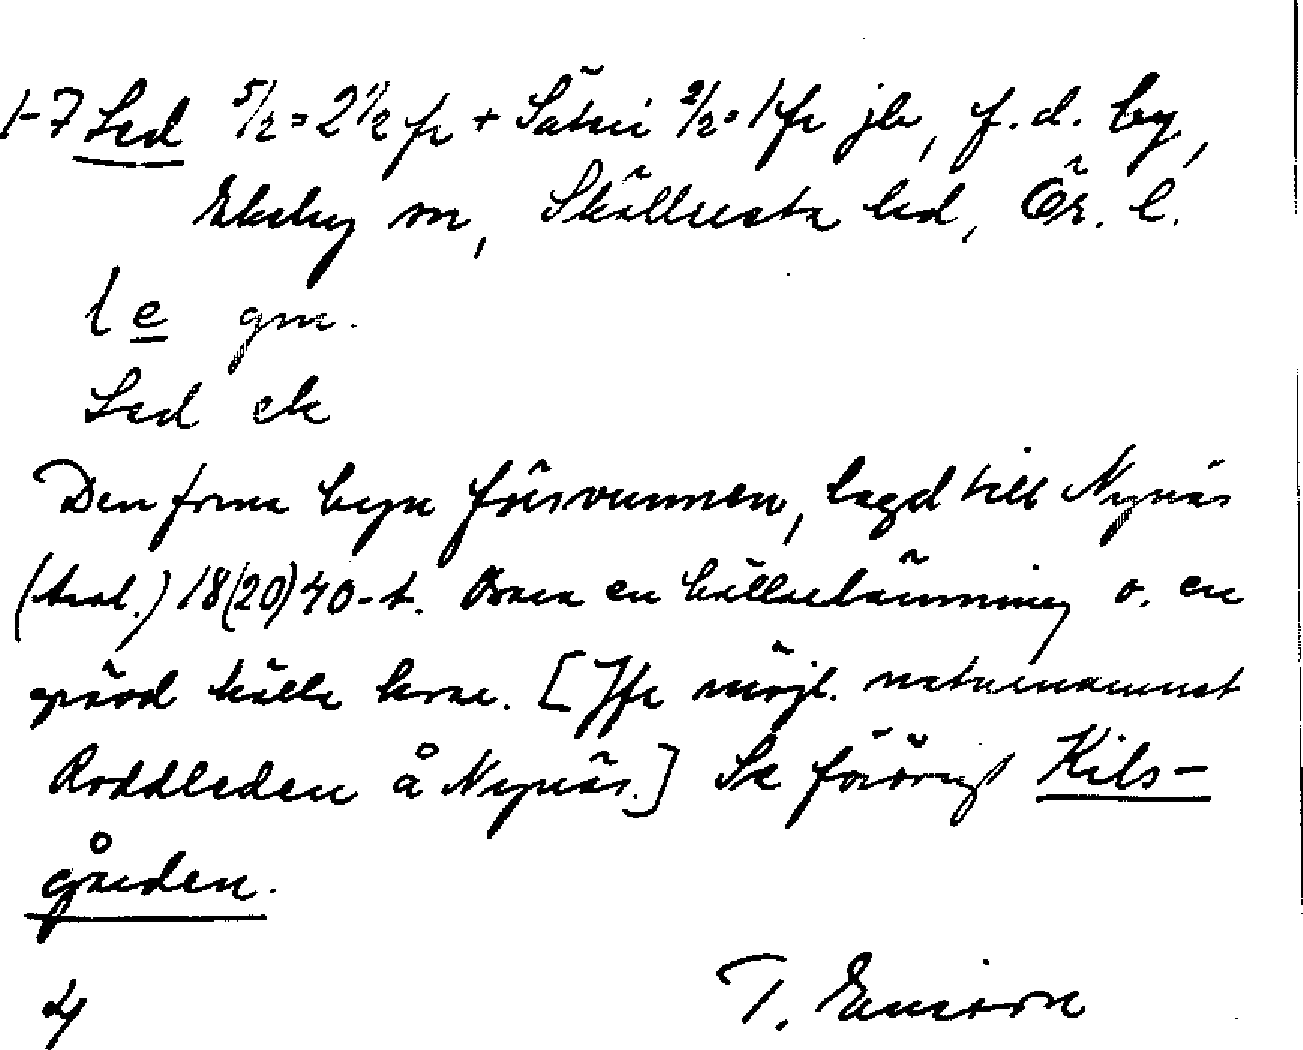 1-7 Led 5/2=2 1/2 fr + Säteri 2/2=1 fr jb, f.d. by,
Ekeby sn, Sköllersta hd, Ör. l.
l e gm.
Led ek
Den forna byn försvunnen, lagd till Nynäs
(trol.) 18(20)40-t. Bara en källarlämning o. en
grävd källa kvar. [Jfr möjl. naturnamnet
Roddleden å Nynäs.] Se förövrigt Kils-
gården.
4
T. Ericson